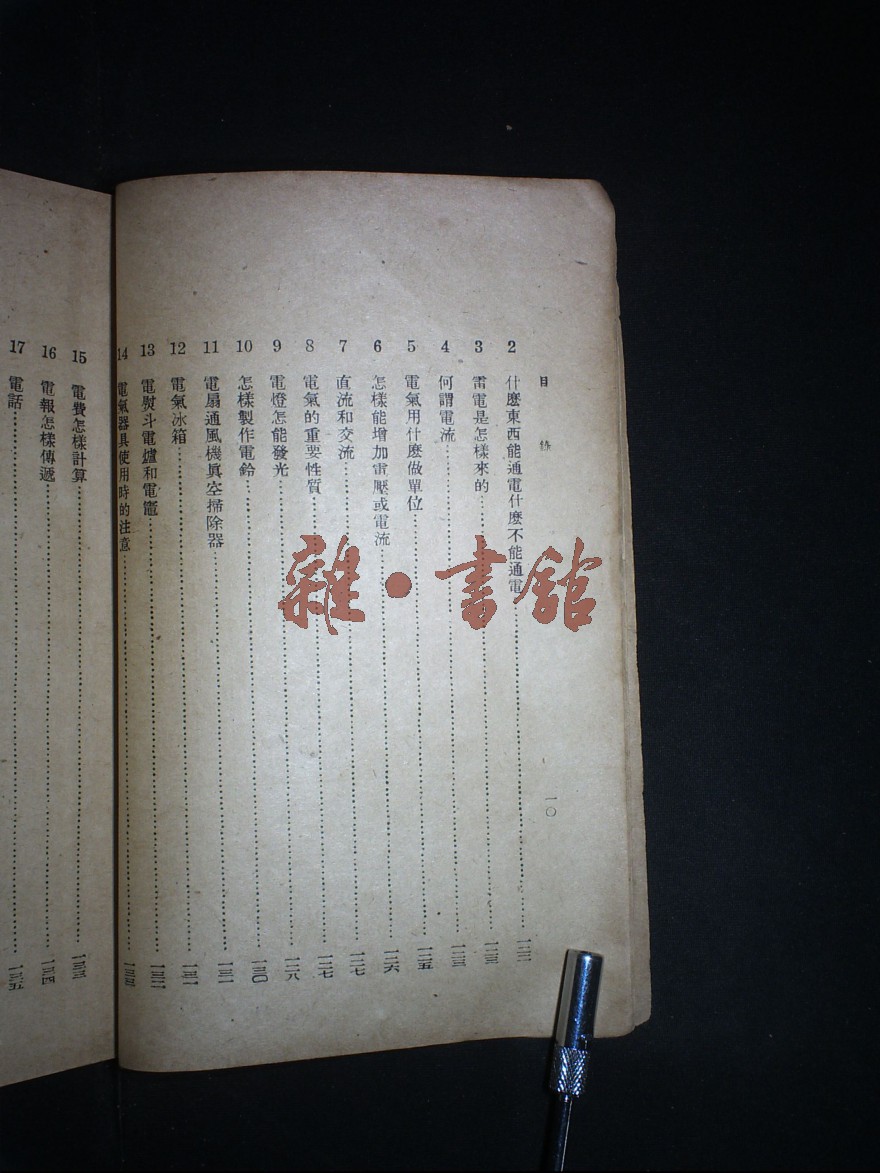 目錄 一〇
2 什麽東西能通電什麽不能通電……一二二
3 雷電是怎樣來的……一二三
4 何謂電流……一二三
5 電氣用什麽做單位……一二五
6 怎樣能增加電壓或電流……一二六
7 直流和交流……一二七
8 電氣的重要性質……一二七
9 電燈怎能發光……一二八
10 怎樣製作電鈴……一三〇
11 電扇通風機眞空掃除器……一三一
12 電氣冰箱……一三一
13 電熨斗電爐和電竈……一三二
14 電氣器具使用時的注意
15 電費怎樣計算……一三三
16 電報怎樣傳遞……一三四
17 電話……一三五
雜·書館